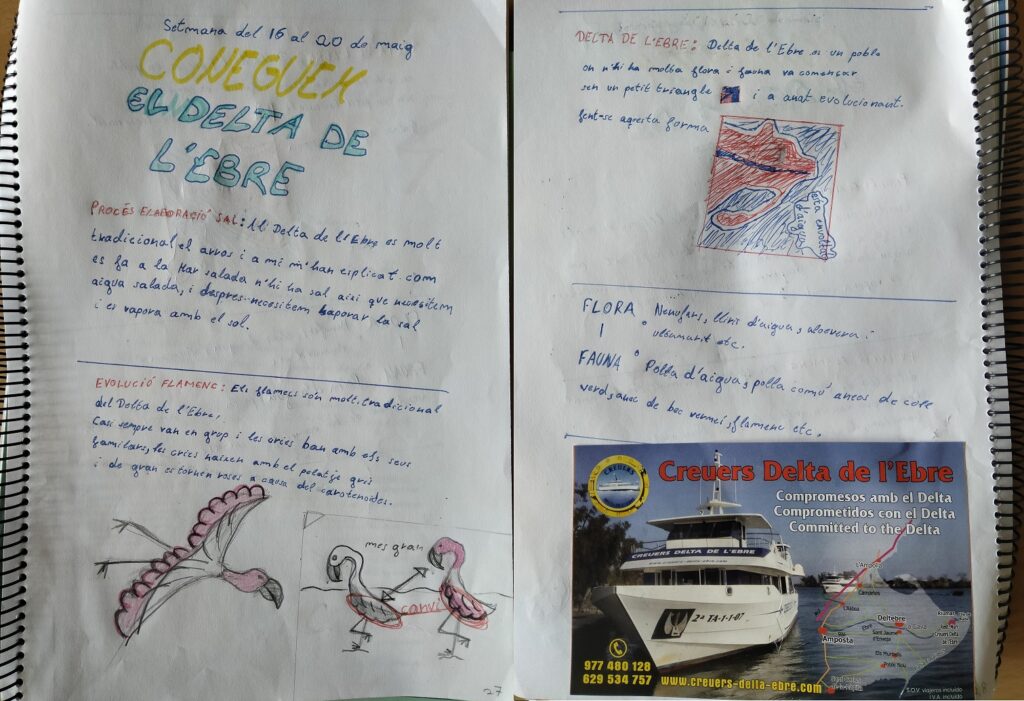 Setmana del 16 al 20 de maig
CONEGUEM
EL DELTA DE
L'EBRE
PROCÉS ELABORACIÓ SAL: Al Delta de l'Ebre es molt
tradicional el arros i a mi m'han esplicat com
es fa a la Mar salada n'hi ha sal aixi que necesitem
aigua salada, i despres necesitem baporar la sal
i es vapora amb el sol.
EVOLUCIÓ FLAMENC: Els flamecs són molt tradicional
del Delta de l'Ebre,
Casi sempre van en grup i les cries ban amb els seus
familiars, les cries naixen amb el pelatje gris
i de gran es tornen roses a causa del caratenoides.
mes gran
canvi
27
DELTA DE L'EBRE: Delta de l'Ebre es un poble
on n'hi ha molta flora i fauna va començar
sen un petit triangle i a anat evolucionant.
fent-se aqresta forma
esta envoltat
d'aigua
FLORA Nenufars, lliri d'aigua, aloevera i
I ultamarit etc.
FAUNA Polla d'aigua, polla comú aneos de coll
verd, anec de bec vermei, flamenc etc.
CREUERS
Creuers Delta de l'Ebre
Compromesos amb el Delta
Comprometidos con el Delta
Committed to the Delta
CREUERS DELTA DE L'EBRE
2ª TA-1-1-07
L'Ampolla
Camarles
L'Aldea
Amposta
Ebre
Deltebre
Sant Jaume
d'Enveja
La Cava
Riumar
Creuers Delta
de l'Ebre
Els Muntells
Poble Nou
977 480 128
629 534 757
www.creuers-delta-ebre.com
S.O.V. viajeros incluido
I.V.A. incluido